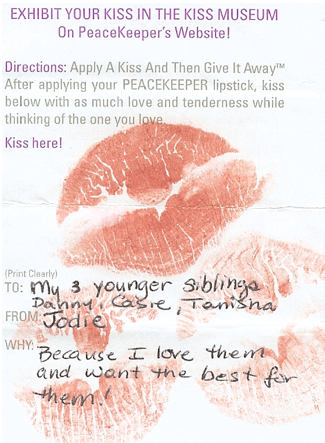 EXHIBIT YOUR KISS IN THE KISS MUSEUM
On PeaceKeeper's Website!
Directions: Apply A Kiss And Then Give It Away™
After applying your PEACEKEEPER lipstick, kiss
below with as much love and tenderness while
thinking of the one you love.
Kiss here!
(Print Clearly)
TO: My 3 younger siblings
Danny, Casie, Tanisha
FROM: Jodie
WHY: Because I love them
and want the best for
them!